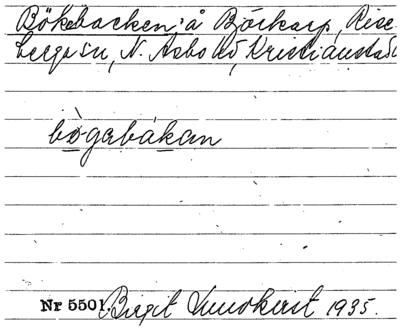 Bökebacken å Björkarp, Rise
berga sn, N. Åsbo hd, Kristianstads
bògabákan
Nr 5501. Birgit Lundkvist 1935.